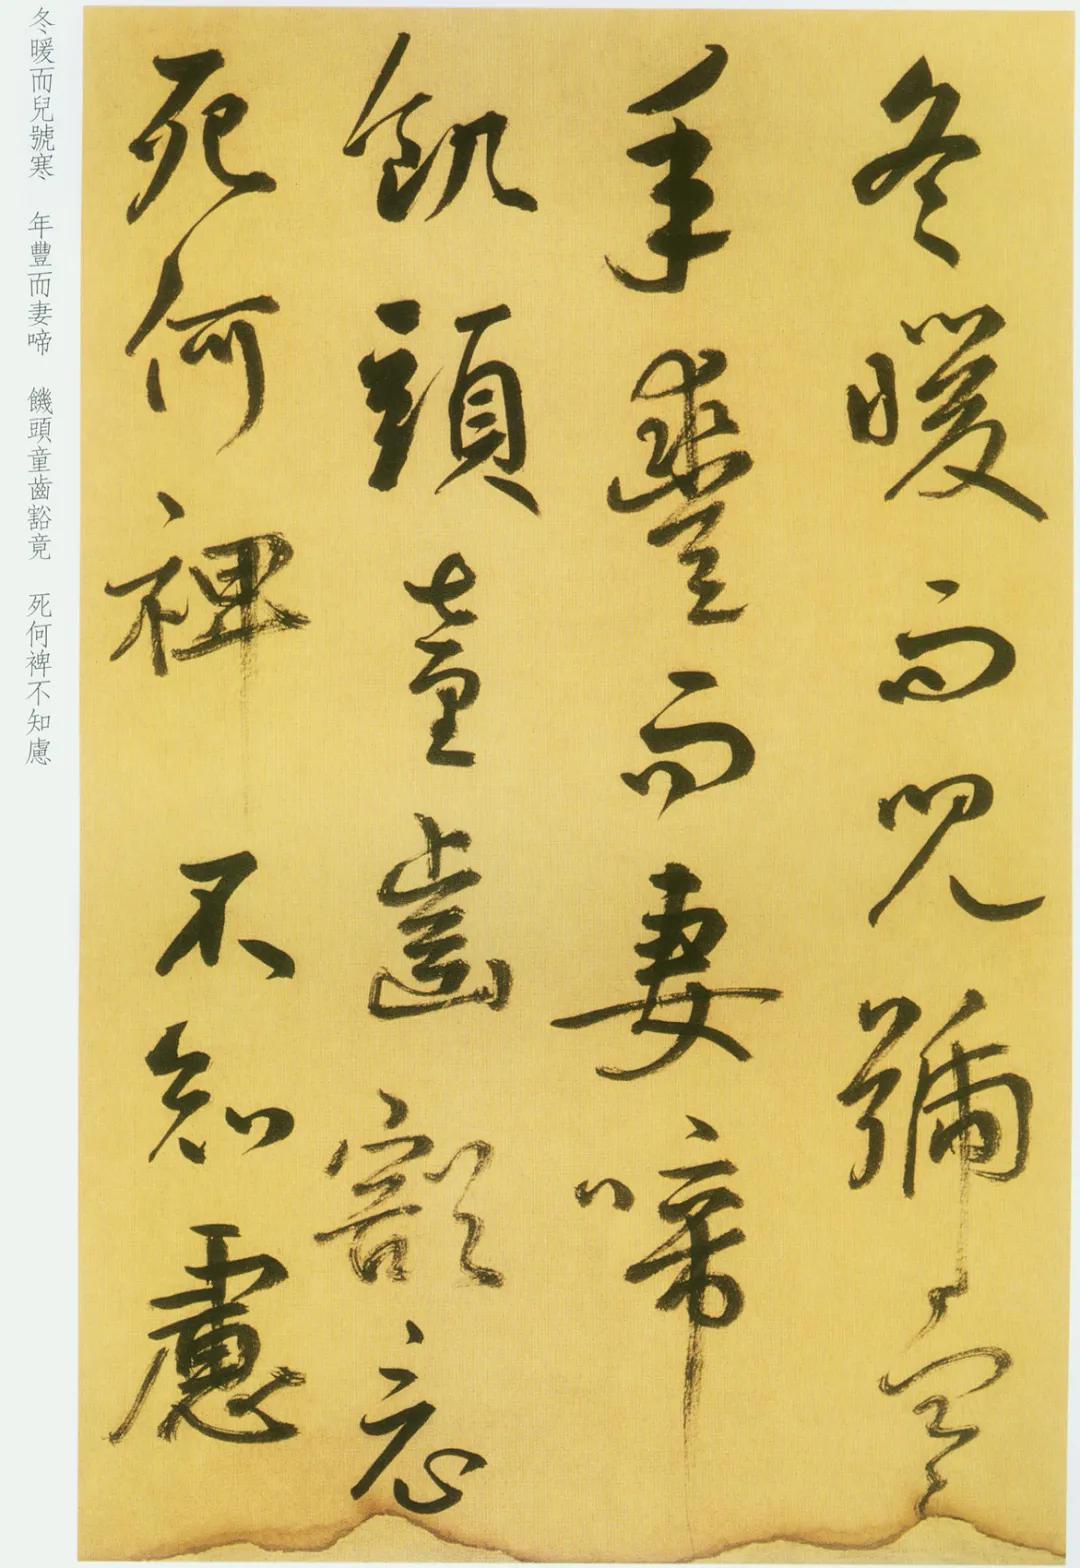 冬暖而兒號寒
年豐而妻啼
飢頭童齒豁竟
死何裨不知慮
冬暖而兒號寒　年豐而妻啼　饑頭童齒豁竟　死何裨不知慮